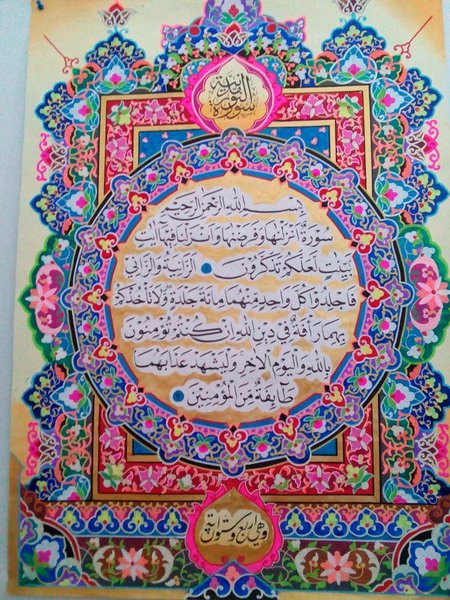 سورة النور مدنية
بسم الله الرحمن الرحيم
سورة أنزلنها وفرضنها وأنزلنا فيها ءايت
بينت لعلكم تذكرون الزانية والزاني
فاجلدوا كل واحد منهما مائة جلدة ولا تأخذكم
بهما رأفة في دين الله إن كنتم تؤمنون
بالله واليوم الآخر وليشهد عذابهما
طائفة من المؤمنين
وهي أربع وستون آية